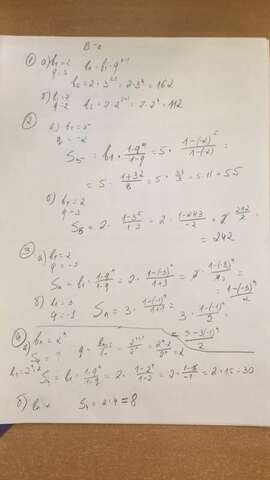 В-2
① а) b₁=2 bₙ=b₁·qⁿ⁻¹
q=3
b₅=2·3⁵⁻¹=2·3⁴=162
б) b₁=7
q=2 b₅=7·2⁵⁻¹=7·2⁴=112
② а) b₁=5
q=-2
S₅=b₁·(1-qⁿ)/(1-q)=5·(1-(-2)⁵)/(1-(-2))=
=5·(1+32)/3=5·33/3=5·11=55
б) b₁=2
q=3
S₅=2·(1-3⁵)/(1-3)=2·(1-243)/(-2)=2·242/2=
=242
③ а) b₁=2
q=-3
Sₙ=b₁·(1-qⁿ)/(1-q)=2·(1-(-3)ⁿ)/(1+3)=2·(1-(-3)ⁿ)/4=
=(1-(-3)ⁿ)/2
б) b₁=3
q=-1
Sₙ=3·(1-(-1)ⁿ)/(1+1)=3·(1-(-1)ⁿ)/2=
=(3-3(-1)ⁿ)/2
④ а) bₙ=2ⁿ
S₄=? q=bₙ₊₁/bₙ=2ⁿ⁺¹/2ⁿ=2ⁿ·2/2ⁿ=2
S₄=b₁·(1-qⁿ)/(1-q)=2·(1-2⁴)/(1-2)=2·(1-16)/(-1)=2·15=30
б) S₄=2·4=8